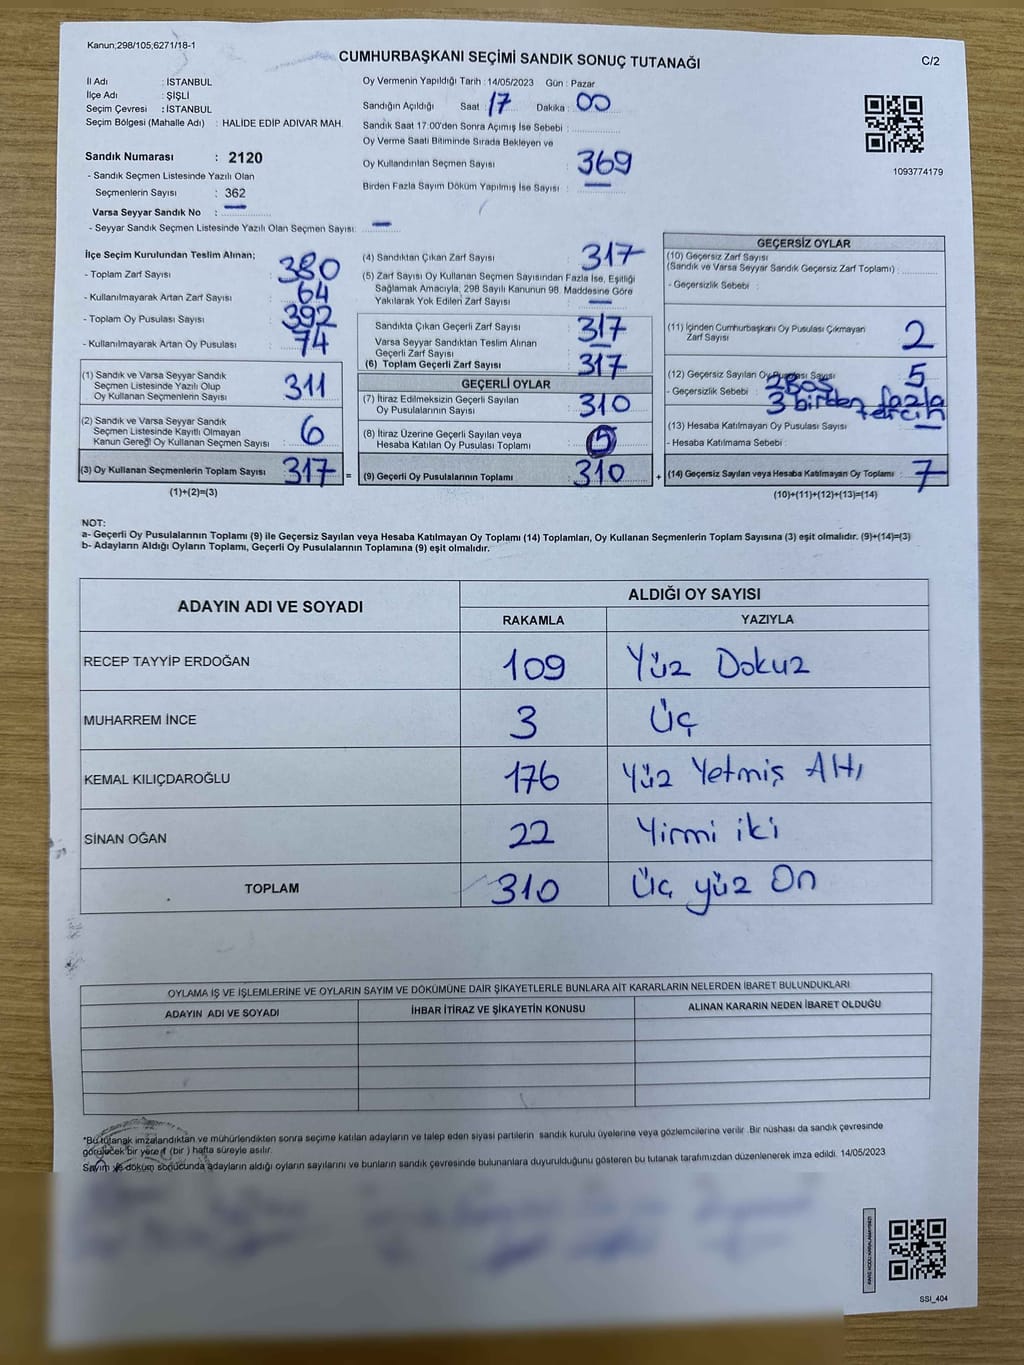 Kanun;298/105;6271/18-1
CUMHURBAŞKANI SEÇİMİ SANDIK SONUÇ TUTANAĞI
C/2
İl Adı : İSTANBUL
İlçe Adı : ŞİŞLİ
Seçim Çevresi : İSTANBUL
Seçim Bölgesi (Mahalle Adı) : HALİDE EDİP ADIVAR MAH.
Sandık Numarası : 2120
- Sandık Seçmen Listesinde Yazılı Olan
Seçmenlerin Sayısı : 362
Varsa Seyyar Sandık No : —
- Seyyar Sandık Seçmen Listesinde Yazılı Olan Seçmen Sayısı: —
Oy Vermenin Yapıldığı Tarih : 14/05/2023 Gün : Pazar
Sandığın Açıldığı Saat : 17 Dakika : 00
Sandık Saat 17:00'den Sonra Açımış İse Sebebi :
Oy Verme Saati Bitiminde Sırada Bekleyen ve
Oy Kullandırılan Seçmen Sayısı : 369
Birden Fazla Sayım Döküm Yapılmış İse Sayısı : —
1093774179
İlçe Seçim Kurulundan Teslim Alınan;
- Toplam Zarf Sayısı : 380
- Kullanılmayarak Artan Zarf Sayısı : 64
- Toplam Oy Pusulası Sayısı : 392
- Kullanılmayarak Artan Oy Pusulası : 74
(1) Sandık ve Varsa Seyyar Sandık
Seçmen Listesinde Yazılı Olup
Oy Kullanan Seçmenlerin Sayısı : 311
(2) Sandık ve Varsa Seyyar Sandık
Seçmen Listesinde Kayıtlı Olmayan
Kanun Gereği Oy Kullanan Seçmen Sayısı : 6
(3) Oy Kullanan Seçmenlerin Toplam Sayısı : 317 =
(1)+(2)=(3)
(4) Sandıktan Çıkan Zarf Sayısı : 317
(5) Zarf Sayısı Oy Kullanan Seçmen Sayısından Fazla İse, Eşitliği
Sağlamak Amacıyla, 298 Sayılı Kanunun 98. Maddesine Göre
Yakılarak Yok Edilen Zarf Sayısı : —
Sandıkta Çıkan Geçerli Zarf Sayısı : 317
Varsa Seyyar Sandıktan Teslim Alınan
Geçerli Zarf Sayısı : —
(6) Toplam Geçerli Zarf Sayısı : 317
GEÇERLİ OYLAR
(7) İtiraz Edilmeksizin Geçerli Sayılan
Oy Pusulalarının Sayısı : 310
(8) İtiraz Üzerine Geçerli Sayılan veya
Hesaba Katılan Oy Pusulası Toplamı :
(9) Geçerli Oy Pusulalarının Toplamı : 310 +
GEÇERSİZ OYLAR
(10) Geçersiz Zarf Sayısı
(Sandık ve Varsa Seyyar Sandık Geçersiz Zarf Toplamı) :
- Geçersizlik Sebebi :
(11) İçinden Cumhurbaşkanı Oy Pusulası Çıkmayan
Zarf Sayısı : 2
(12) Geçersiz Sayılan Oy Pusulası Sayısı : 5
- Geçersizlik Sebebi : 2 Boş
3 birden fazla
tercih
(13) Hesaba Katılmayan Oy Pusulası Sayısı : —
- Hesaba Katılmama Sebebi :
(14) Geçersiz Sayılan veya Hesaba Katılmayan Oy Toplamı : 7
(10)+(11)+(12)+(13)=(14)
NOT:
a- Geçerli Oy Pusulalarının Toplamı (9) ile Geçersiz Sayılan veya Hesaba Katılmayan Oy Toplamı (14) Toplamları, Oy Kullanan Seçmenlerin Toplam Sayısına (3) eşit olmalıdır. (9)+(14)=(3)
b- Adayların Aldığı Oyların Toplamı, Geçerli Oy Pusulalarının Toplamına (9) eşit olmalıdır.
ADAYIN ADI VE SOYADI
ALDIĞI OY SAYISI
RAKAMLA YAZIYLA
RECEP TAYYİP ERDOĞAN 109 Yüz Dokuz
MUHARREM İNCE 3 Üç
KEMAL KILIÇDAROĞLU 176 Yüz Yetmiş Altı
SİNAN OĞAN 22 Yirmi iki
TOPLAM 310 Üç yüz On
OYLAMA İŞ VE İŞLEMLERİNE VE OYLARIN SAYIM VE DÖKÜMÜNE DAİR ŞİKAYETLERLE BUNLARA AİT KARARLARIN NELERDEN İBARET BULUNDUKLARI
ADAYIN ADI VE SOYADI İHBAR İTİRAZ VE ŞİKAYETİN KONUSU ALINAN KARARIN NEDEN İBARET OLDUĞU
*Bu tutanak imzalandıktan ve mühürlendikten sonra seçime katılan adayların ve talep eden siyasi partilerin sandık kurulu üyelerine veya gözlemcilerine verilir. Bir nüshası da sandık çevresinde
görülecek bir yere 1 (bir ) hafta süreyle asılır.
Sayım ve döküm sonucunda adayların aldığı oyların sayılarını ve bunların sandık çevresinde bulunanlara duyurulduğunu gösteren bu tutanak tarafımızdan düzenlenerek imza edildi. 14/05/2023
SSI_404